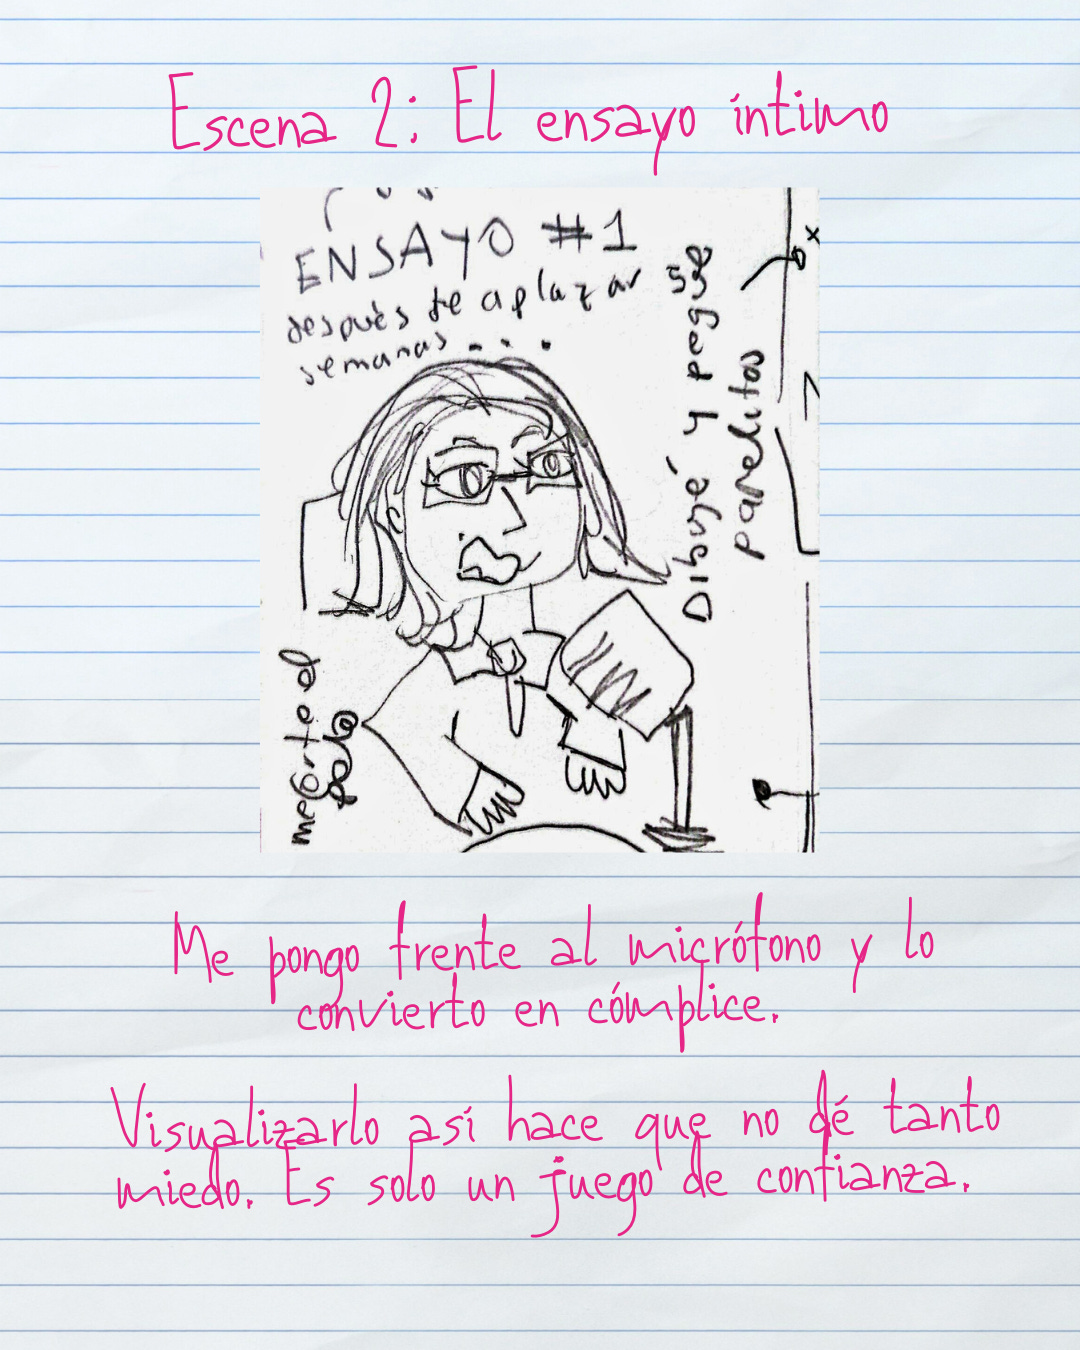 Escena 2: El ensayo íntimo
ENSAYO #1
después de aplazar
semanas...
Dibujé y pegué
papelitos
me corté el
pelo
Me pongo frente al micrófono y lo
convierto en cómplice.
Visualizarlo así hace que no dé tanto
miedo. Es solo un juego de confianza.